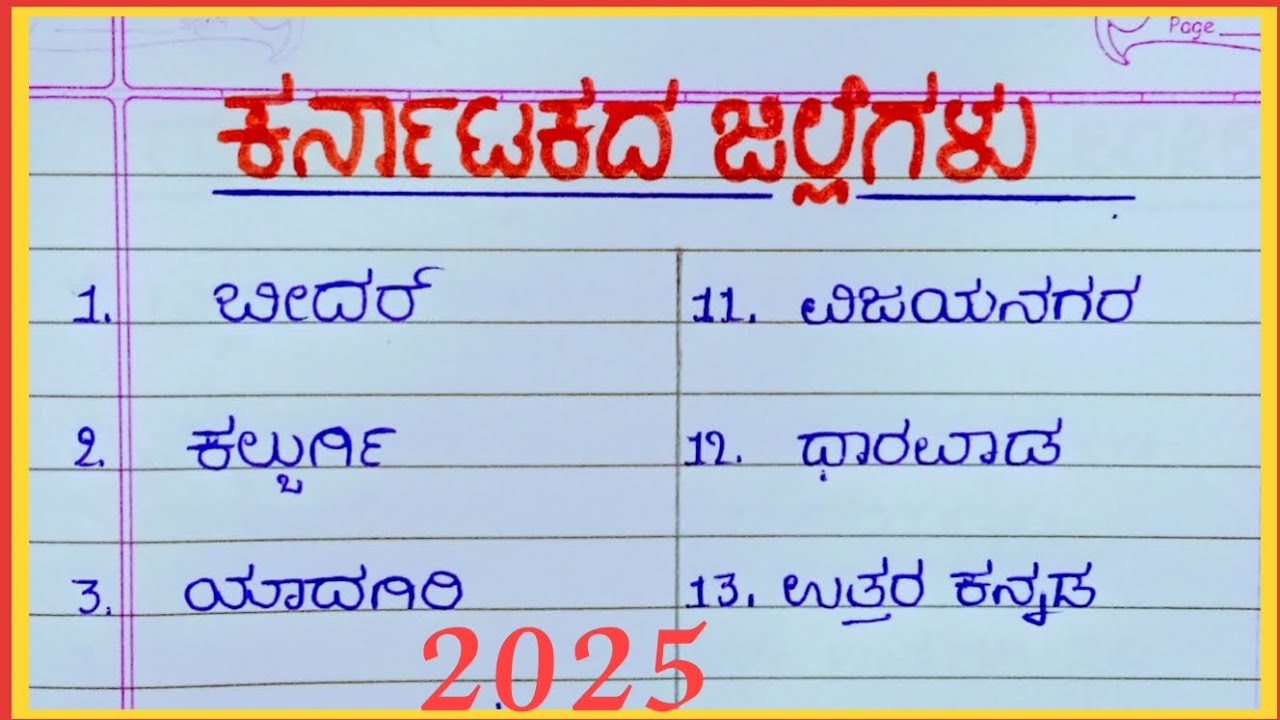 Page
ಕರ್ನಾಟಕದ ಜಿಲ್ಲೆಗಳು
1. ಬೀದರ್
2. ಕಲ್ಬುರ್ಗಿ
3. ಯಾದಗಿರಿ
11. ವಿಜಯನಗರ
12. ಧಾರವಾಡ
13. ಉತ್ತರ ಕನ್ನಡ
2025